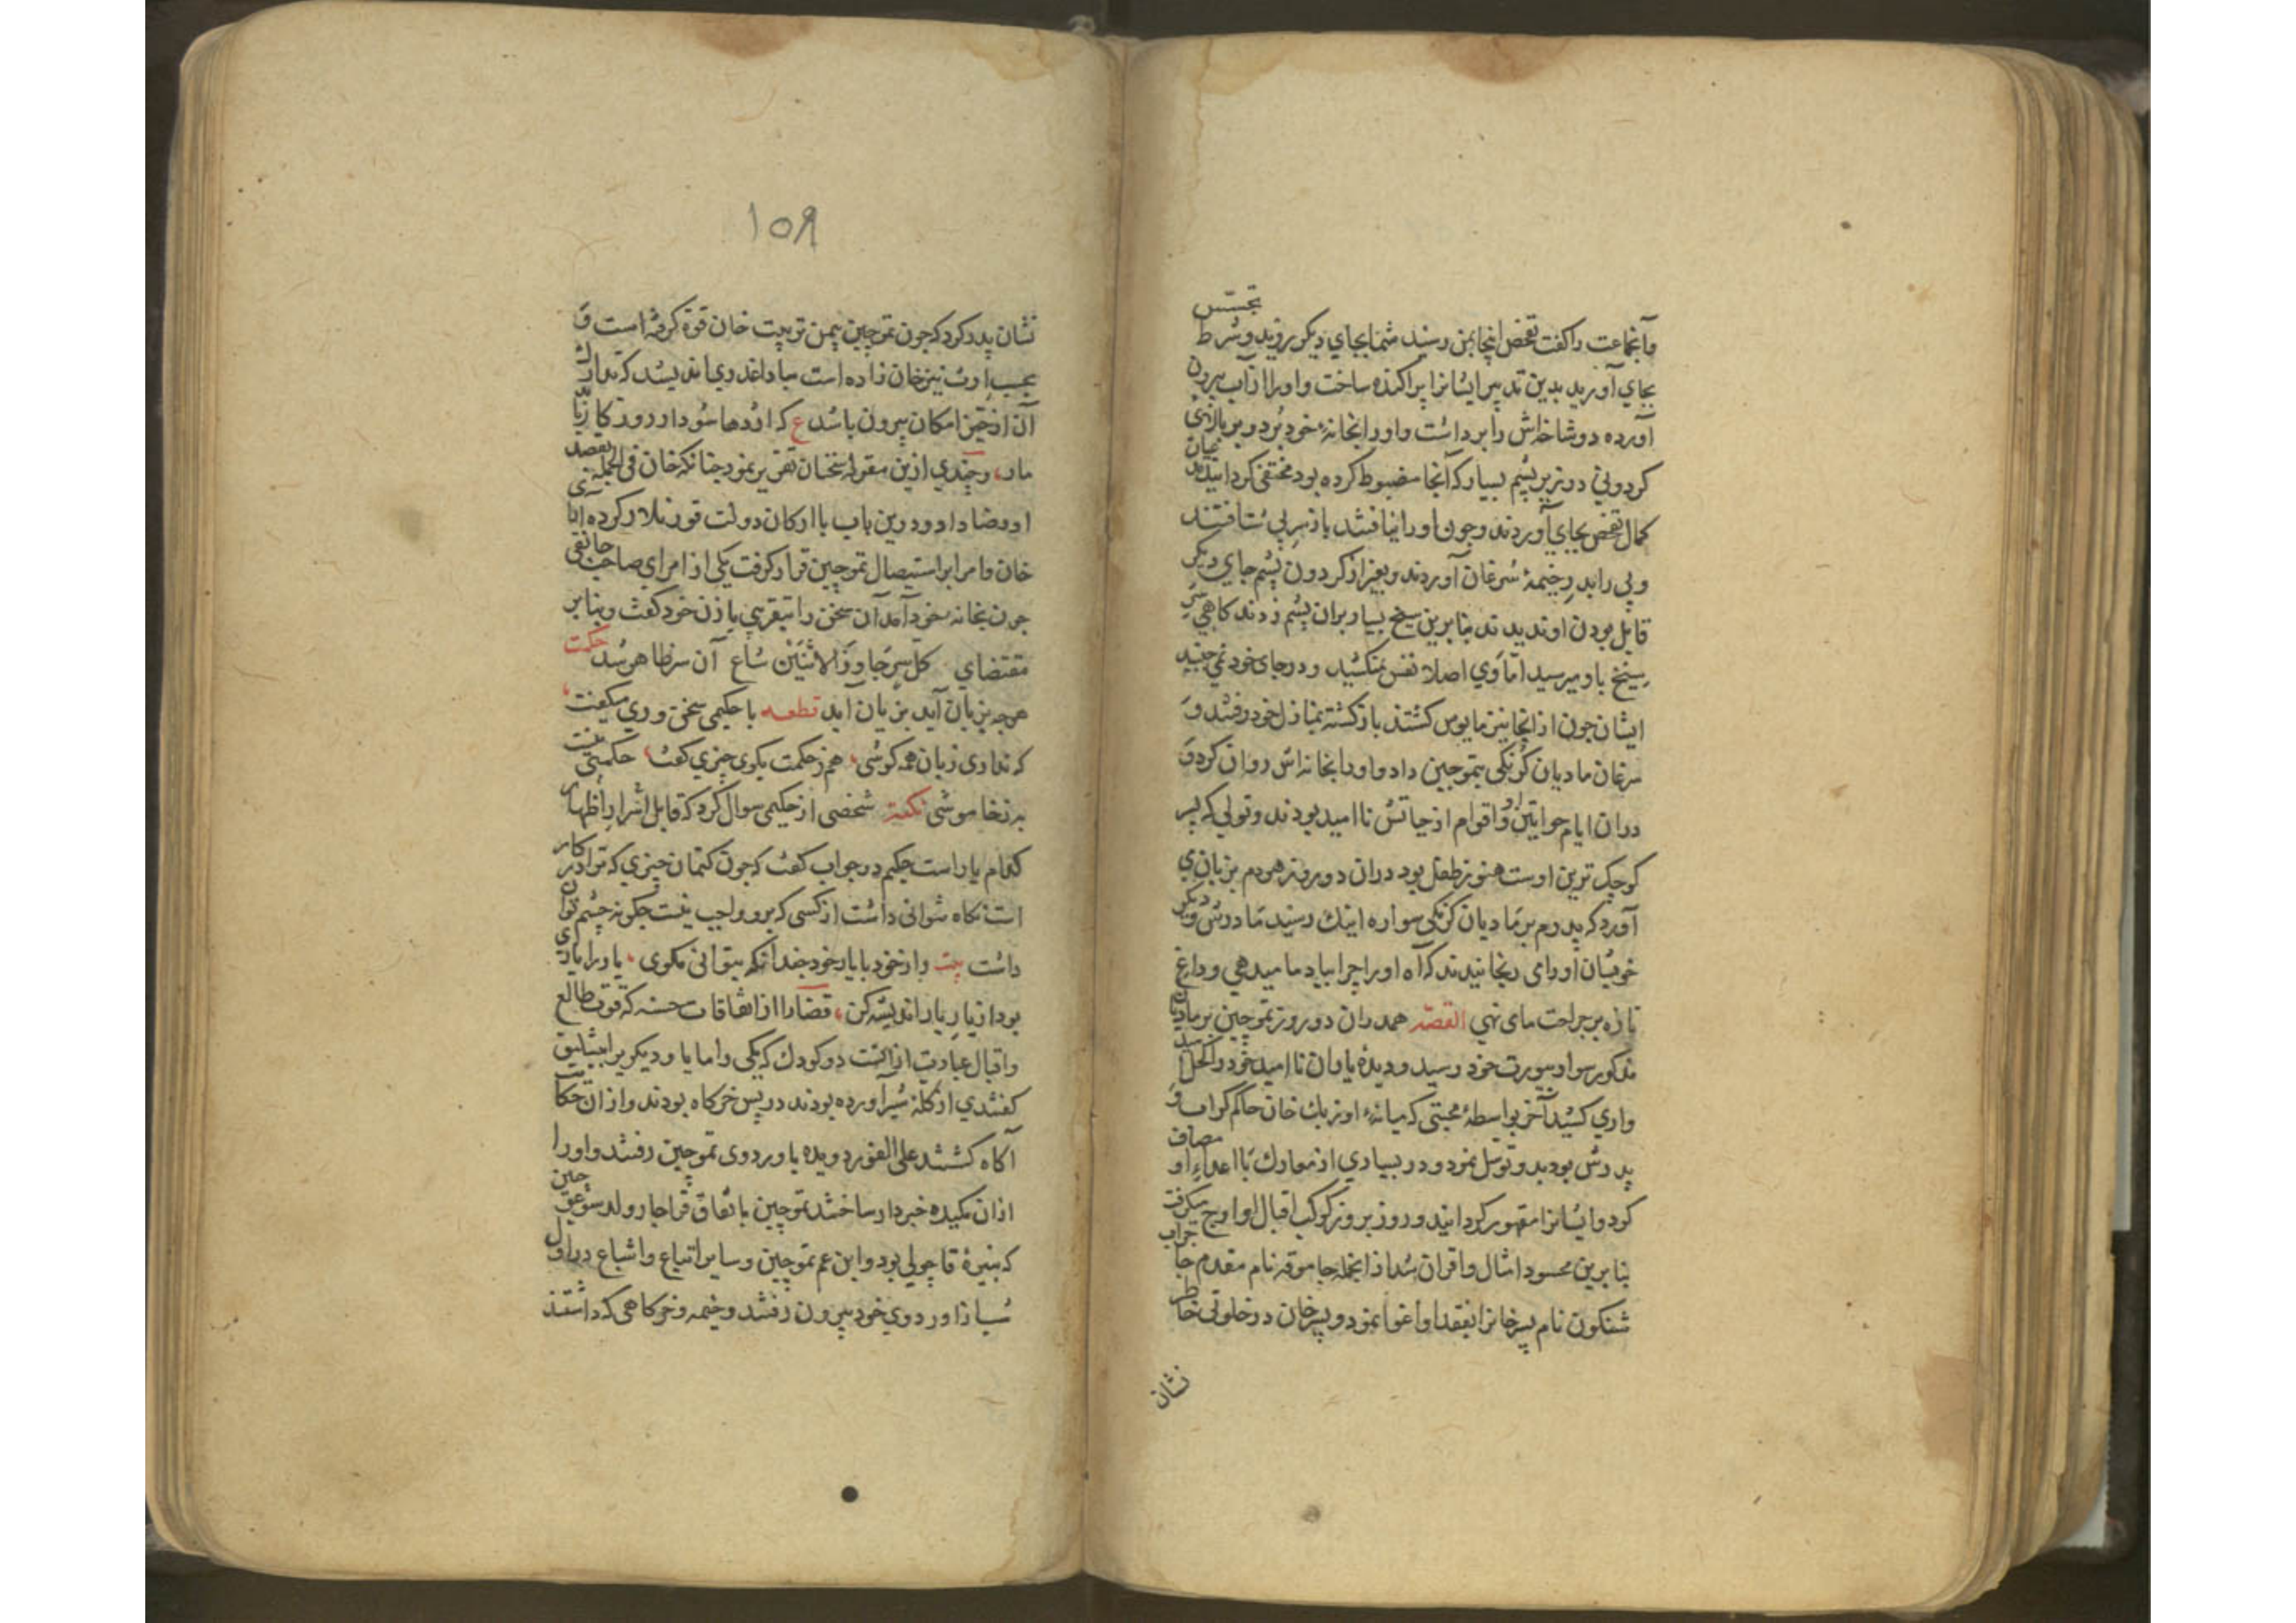 تجسّس
وآنجماعت را گفت تفحص اینجا بمن رسید شما بجای دیکر روید و شرط
بجای آورید بدین تدبیر ایشانرا پراکنده ساخت و اورا از آب بیرون
آورده دوشاخه‌اش را برداشت و اورا بخانهٔ خود برد و بر بالای
کردونی در زیر پشم بسیار که آنجا مضبوط کرده بود مختفی کردانید
کمال تفحص بجای آوردند و چون اورا نیافتند باز سر پی شتافتند
و پی را بدر خیمهٔ سرغان آوردند و بغیر از کردون پشم جای دیکر
قابل بودن او ندیدند بنابرین سیخ بسیار بران پشم زدند کاهی سر
سیخ باو میرسید امّا وی اصلا نفس نمیکشید و در جای خود نمی جنبید
ایشان چون از آنجا نیز مایوس کشتند بازکشته بمنازل خود رفتند و
سرغان مادیان کرنکی بتموچین داد و اورا بخانه‌اش روان کرد و
دران ایام خواتین و اقوام از حیاتش ناامید بودند و تولی که پسر
کوچک ترین اوست هنوز طفل بود دران دو روز هردم بزبان می
آورد که پدرم بر مادیان کرنکی سواره اینک رسید مادرش و دیکر
خویشان اورا می رنجانیدند که آه اورا چرا بیاد ما میدهی و داغ
تازه بر جراحت ما می نهی القصّه همدران دو روز تموچین بر مادیان
مذکور سوار بیورت خود رسید و دیدهٔ یاران ناامید خود را کحل
واری کشید آخر بواسطهٔ محبتی که میانهٔ اونزبک خان حاکم کرایت و
پدرش بود بدو توسل نمود و در بسیاری از معارک با اعداء او مصاف
کرد و ایشانرا مقهور کردانید و روز بروز کوکب اقبال او اوج میکرفت
بنابرین محسود امثال و اقران شد از انجمله جاموقه نام مقدم جا
شنکون نام پسر خانرا بقصد او اغوا نمود و پسر خان در خلوتی خاطر
نشان
١٥٩
نشان پدر کرد که چون تموچین بیمن تربیت خان قوة کرفته است و
بحسب ارث نیز خان زاده است مبادا غدری اندیشد که تدارک
آن از حیّز امکان بیرون باشد ع که اژدها شود ار روزکار یابد
مار، و چندی ازین مقوله سخنان تقریر نمود چنانکه خان فی الجمله بقصد
او رضا داد و درین باب با ارکان دولت قورنلار کرده رای
خان و امرا بر استیصال تموچین قرار کرفت یکی از امرای صاحب جانقی
چون بخانهٔ خود آمد آن سخن را بتقریبی با زن خود کفت و بنابر
مقتضای کل سر جاوز الاثنین شاع آن سر ظاهر شد حکمت
هرچه بزبان آید بزیان آید قطعه با حکیمی سخنوری میکفت
که نداری زبان همه کوشی، هم ز حکمت بکوی چیزی کفت، حکمتی نیست
به ز خاموشی نکته شخصی از حکیمی سوال کرد که قابل اسرار و اظهار
کدام یار است حکیم در جواب کفت که چون کتمان چیزی که ترا در کار
است نکاه نتوانی داشت از کسی که برو واجب نیست چکونه چشم توان
داشت بیت راز خود با یار خود چندانکه بتوانی مکوی، یار را یاری
بود از یار یار اندیشه کن، قضارا از اتفاقات حسنه که قوت طالع
و اقبال عبارت از انست دو کودک که یکی را ماما و دیکری را بیشلیق
کفتندی از کله شیر آورده بودند در پس خرکاه بودند و از ان حکایت
آکاه کشتند علی الفور دویده باوردوی تموچین رفتند و اورا
ازان مکیده خبردار ساختند تموچین باتفاق قراجار ولد سوغو چین
که نبیرهٔ قاچولی بود و ابن عم تموچین و سایر اتباع و اشیاع در اول
شب از اوردوی خود بیرون رفتند و خیمه و خرکاهی که داشتند